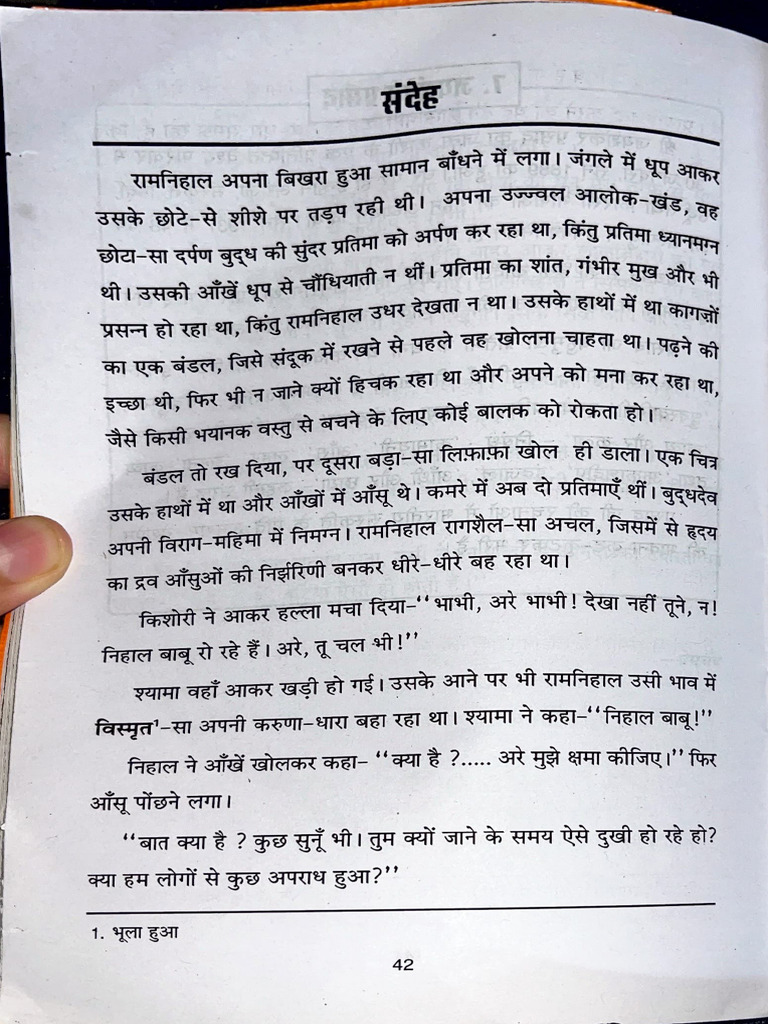 संदेह
रामनिहाल अपना बिखरा हुआ सामान बाँधने में लगा। जंगले में धूप आकर
उसके छोटे-से शीशे पर तड़प रही थी। अपना उज्ज्वल आलोक-खंड, वह
छोटा-सा दर्पण बुद्ध की सुंदर प्रतिमा को अर्पण कर रहा था, किंतु प्रतिमा ध्यानमग्न
थी। उसकी आँखें धूप से चौंधियाती न थीं। प्रतिमा का शांत, गंभीर मुख और भी
प्रसन्न हो रहा था, किंतु रामनिहाल उधर देखता न था। उसके हाथों में था कागज़ों
का एक बंडल, जिसे संदूक में रखने से पहले वह खोलना चाहता था। पढ़ने की
इच्छा थी, फिर भी न जाने क्यों हिचक रहा था और अपने को मना कर रहा था,
जैसे किसी भयानक वस्तु से बचने के लिए कोई बालक को रोकता हो।
बंडल तो रख दिया, पर दूसरा बड़ा-सा लिफ़ाफ़ा खोल ही डाला। एक चित्र
उसके हाथों में था और आँखों में आँसू थे। कमरे में अब दो प्रतिमाएँ थीं। बुद्धदेव
अपनी विराग-महिमा में निमग्न। रामनिहाल रागशैल-सा अचल, जिसमें से हृदय
का द्रव आँसुओं की निर्झरिणी बनकर धीरे-धीरे बह रहा था।
किशोरी ने आकर हल्ला मचा दिया-‘‘भाभी, अरे भाभी! देखा नहीं तूने, न!
निहाल बाबू रो रहे हैं। अरे, तू चल भी!’’
श्यामा वहाँ आकर खड़ी हो गई। उसके आने पर भी रामनिहाल उसी भाव में
विस्मृत¹-सा अपनी करुणा-धारा बहा रहा था। श्यामा ने कहा-‘‘निहाल बाबू!’’
निहाल ने आँखें खोलकर कहा- ‘‘क्या है ?..... अरे मुझे क्षमा कीजिए।’’ फिर
आँसू पोंछने लगा।
‘‘बात क्या है ? कुछ सुनूँ भी। तुम क्यों जाने के समय ऐसे दुखी हो रहे हो?
क्या हम लोगों से कुछ अपराध हुआ?’’
1. भूला हुआ
42